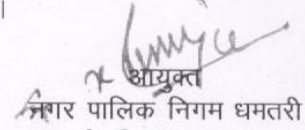 ।
आयुक्त
नगर पालिक निगम धमतरी